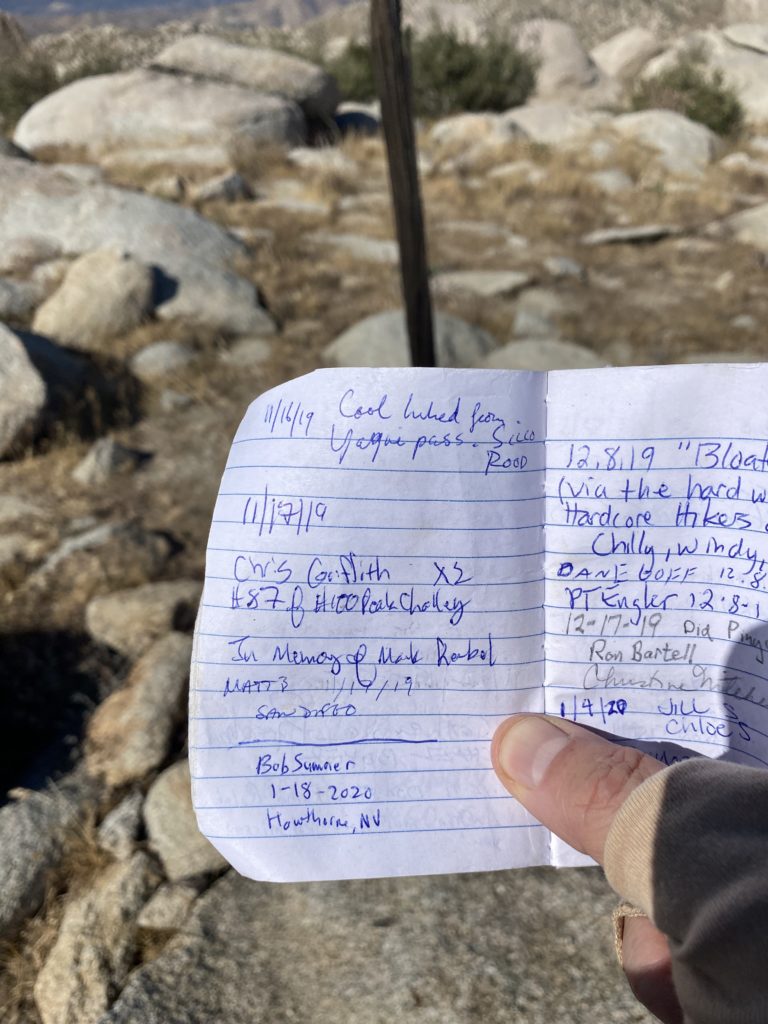 11/16/19 Cool hiked from
Yaqui pass.
ROOD
11/17/19
Chris Griffith X2
#87 of #100PeakChalley
In Memory of Mark
MATT B 11/19/19
SAN DIEGO
Bob Sumner
1-18-2020
Hawthorne, NV
12.8.19 "Bloat
(via the hard w
Hardcore Hikers
Chilly, windy,
DANE GOFF 12.8.
PT Engler 12-8-1
12-17-19 Did Pinyo
Ron Bartell
Christine Mitche
1/4/20 Jill S
Chloe S